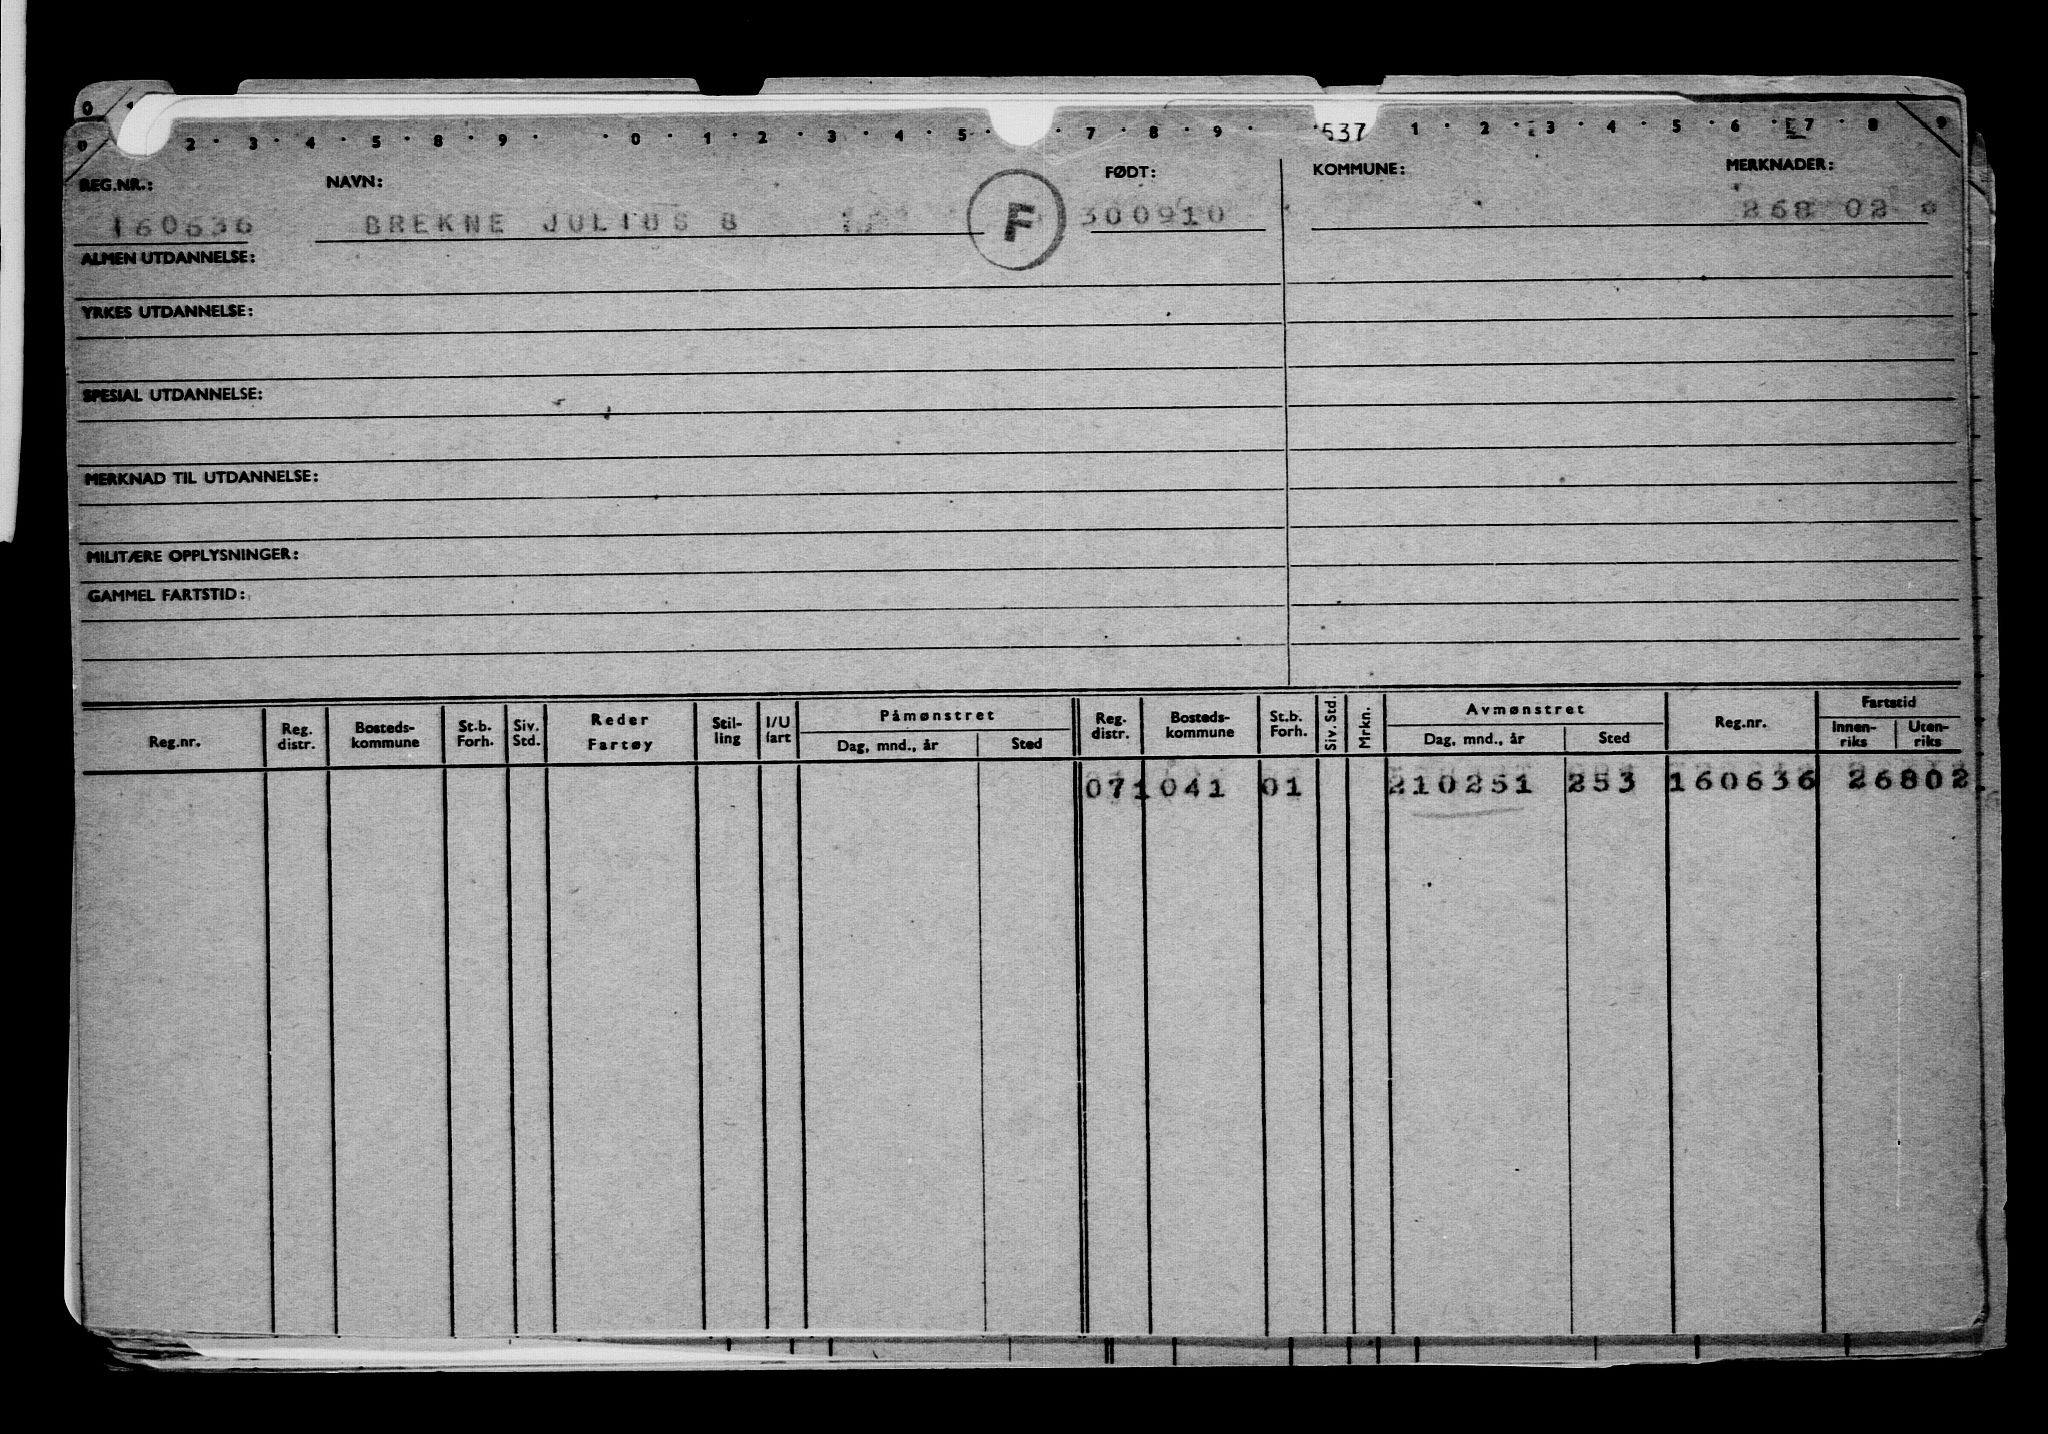 0
0 2 · 3 · 4 · 5 · 8 · 9 · · 0 · 1 · 2 · 3 · 4 · 5 · 7 · 8 · 9 · 537 1 · 2 · 3 · 4 · 5 · 6 · 7 · 8 9
REG.NR.: NAVN: FØDT: KOMMUNE: MERKNADER:
160636 BREKNE JULIUS B F 300910 268 02
ALMEN UTDANNELSE:
YRKES UTDANNELSE:
SPESIAL UTDANNELSE:
MERKNAD TIL UTDANNELSE:
MILITÆRE OPPLYSNINGER:
GAMMEL FARTSTID:
Reg.nr. Reg. distr. Bosteds- kommune St.b. Forh. Siv. Std. Reder Fartøy Stil- ling I/U fart Påmønstret Dag, mnd., år Sted Reg. distr. Bosteds- kommune St.b. Forh. Siv. Std. Mrkn. Avmønstret Dag, mnd., år Sted Reg.nr. Fartstid Innen- riks Uten- riks
071041 01 210251 253 160636 26802